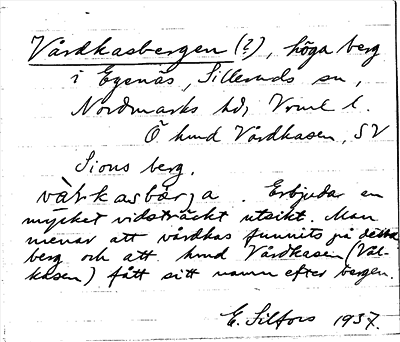 Vårdkasbergen (?), höga berg
i Egenäs, Sillerud sn,
Nordmarks hd, Vrml l.
Ö hmd Vårdkasen, SV
Sions berg.
vàrkasbærja. Erbjudar en
mycket vidsträckt utsikt. Man
menar att vårdkas funnits på detta
berg och att hmd Vårdkasen (Val-
kasen) fått sitt namn efter bergen.
E. Silfors 1937.